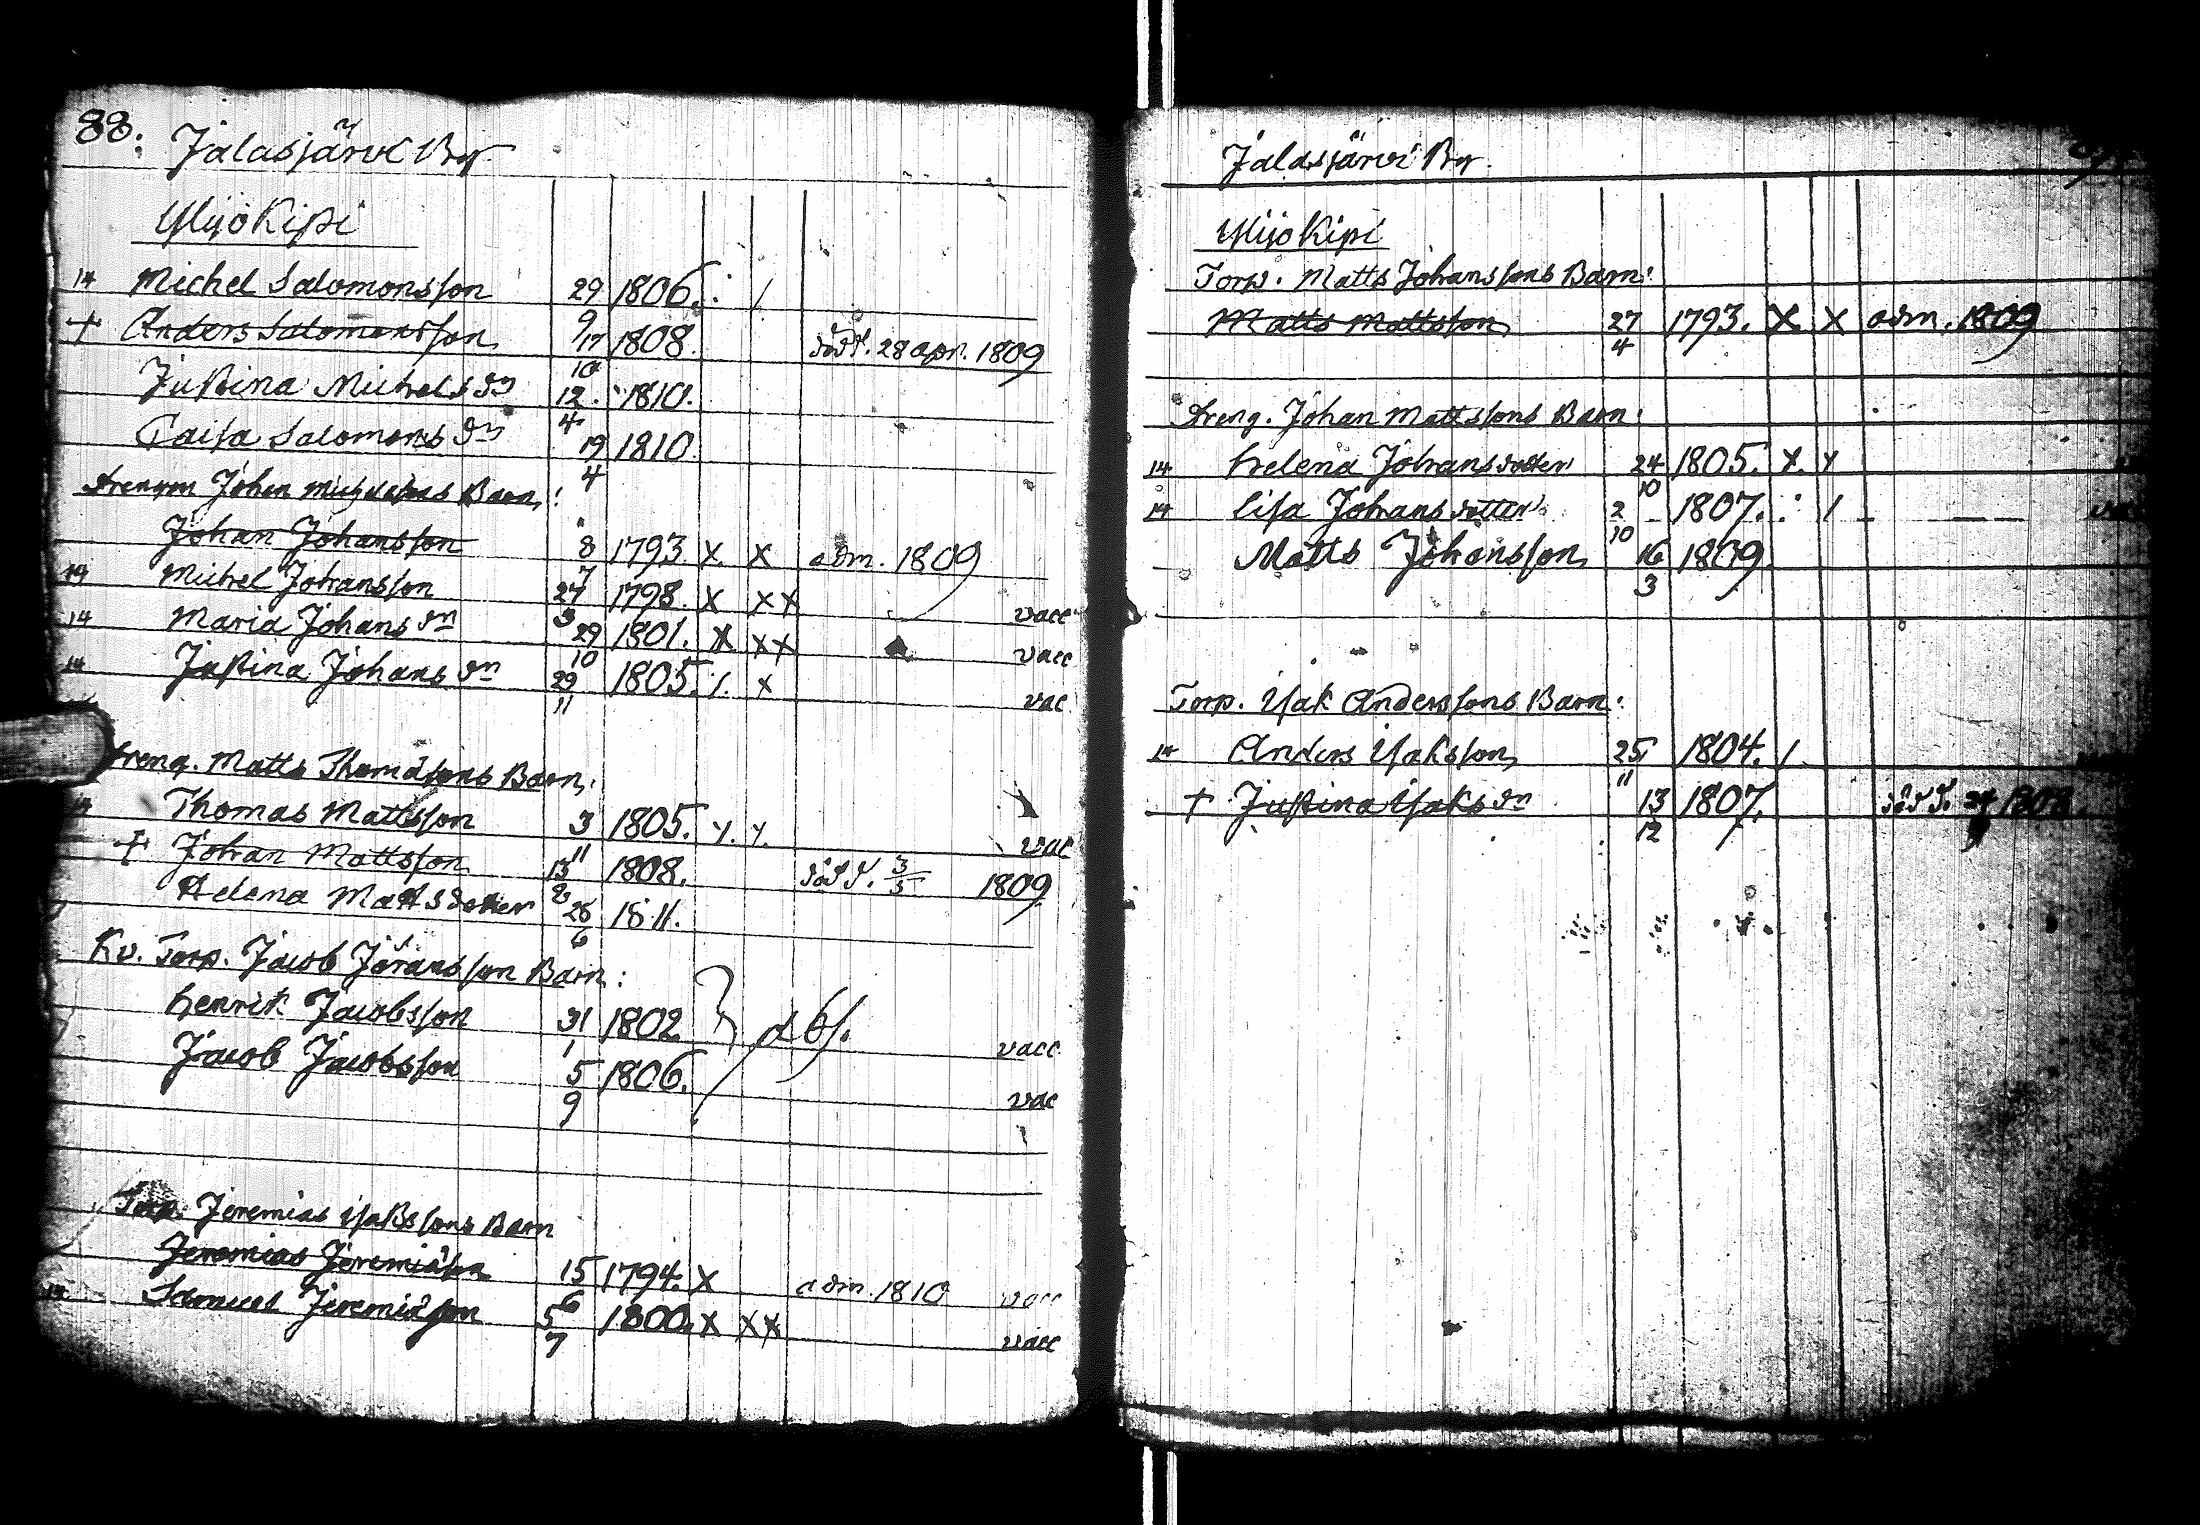 88. Jalasjärvi By.
Ylijokipi
14 Michel Salomonsson 29/9 1806. /
+ Anders Salomonsson 17/10 1808. död d. 28 apr. 1809
Justina Michels dr 12/4 1810.
Caisa Salomons dr 19/4 1810
Drengen Johan Barn:
Johan Johansson 8/7 1793 x x adm. 1809
14 Michel Johansson 27/3 1798. x xx vacc
14 Maria Johans dr 29/10 1801. x xx vacc
14 Justina Johans dr 29/11 1805. /. x vac
Dreng. Matts Thomasons Barn:
14 Thomas Mattsson 3/11 1805. y. y. vac
+ Johan Mattsson 13/2 1808. död d. 3/5 1809
Helena Matts dotter 28/6 1811.
Torp. Jacob Jöransson Barn:
Henrik Jacobsson 31/1 1802 vacc
Jacob Jacobsson 5/9 1806. vac
Torp. Jeremias Isakssons Barn
Jeremias Jeremiason 15/6 1794. x adm. 1810 vacc
Samuel Jeremiason 5/7 1800. x xx vacc
Jalasjärvi By.
Ylijokipi
Torp. Matts Johanssons Barn:
Matts Mattsson 27/4 1793. X X adm. 1809
Dreng. Johan Mattssons Barn:
14 Helena Johansdotter 24/10 1805. x. y
14 Lisa Johansdotter 2/10 1807. /
Matts Johansson 16/3 1809.
Torp. Isak Anderssons Barn:
14 Anders Isaksson 25/11 1804. /.
+ Justina Isaks dr 13/12 1807. död d. 1808.